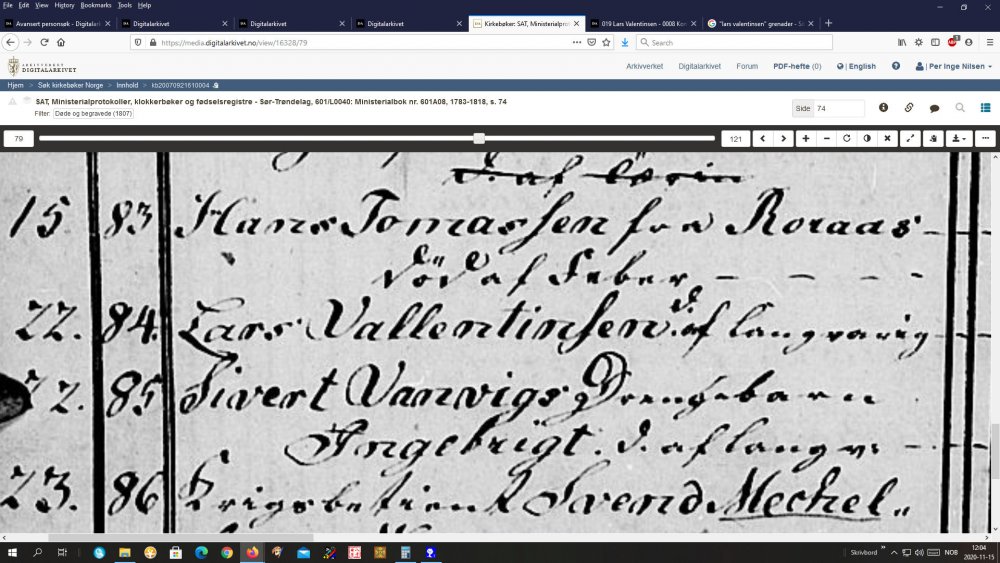 File Edit View History Bookmarks Tools Help
Avansert personsøk - Digitalarki
Digitalarkivet
Digitalarkivet
Digitalarkivet
Kirkebøker: SAT, Ministerialprot
019 Lars Valentinsen - 0008 Kor
"lars valentinsen" grenader - S
https://media.digitalarkivet.no/view/16328/79
Search
ARKIVVERKET
DIGITALARKIVET
Arkivverket Digitalarkivet Forum PDF-hefte (0) English Per Inge Nilsen
Hjem Søk kirkebøker Norge Innhold kb20070921610004
SAT, Ministerialprotokoller, klokkerbøker og fødselsregistre - Sør-Trøndelag, 601/L0040: Ministerialbok nr. 601A08, 1783-1818, s. 74
Filter: Døde og begravede (1807)
Side 74
79 121
15. 83 Hans Tomassen fra Roraas
död af Feber
22. 84. Lars Vallentinsen d. af langvarig
22. 85 Sivert Vanvigs Drengebarn
Ingebrigt. d. af langv
23. 86 Krigsbetient Svend Mechel
Skrivbord
NOB
12:04
2020-11-15